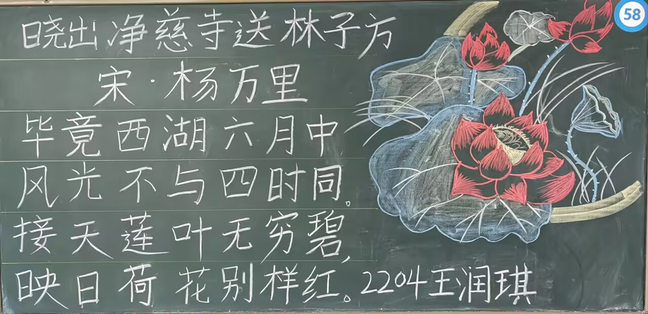 晓出净慈寺送林子方
宋·杨万里
毕竟西湖六月中
风光不与四时同。
接天莲叶无穷碧,
映日荷花别样红。2204王润琪
58